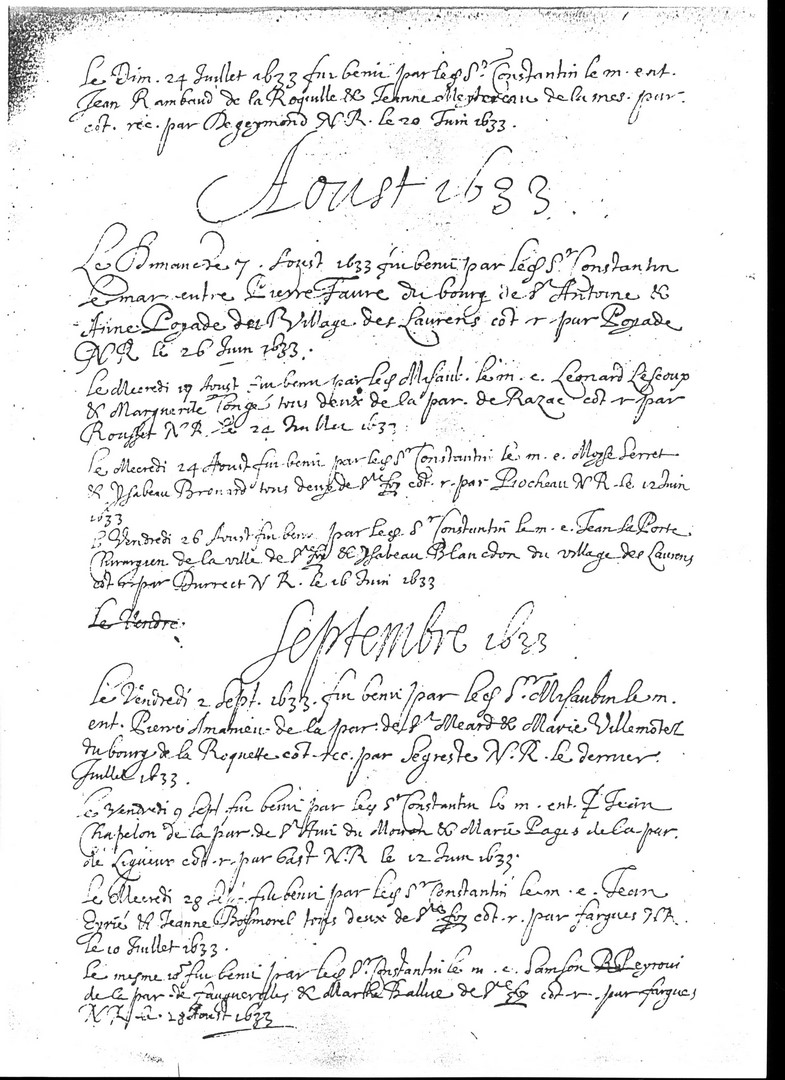 Le Dim. 24 Juillet 1633 fut beni par led Sr Constantin le m. ent.
Jean Rambaud de la Roquille & Jeanne de la mes. par.
cot. rec. par Degeymond N.R. le 20 Juin 1633.
Aoust 1633
Le Dimanche 7. Aoust 1633 fut beni par led Sr Constantin
le mar. entre Pierre Faure du bourg de St Antoine &
Anne Pozade des Village des Laurens cot r par Pozade
N.R. le 26 Juin 1633.
Le Mecredi Aoust fut beni par led Misaub. le m. e. Leonard Lescoup
& Marguerite Longé tous deux de la par. de Razac cot r par
Rousset N.R. le 24 Juillet 1633
Le Mecredi 24 Aoust fut beni par led Sr Constantin le m. e. Moyse Serret
& Ysabeau Brouard tous deux de Ste foy cot. r. par Piocheau N.R. le 12 Juin
1633
Le Vendredi 26 Aoust fut beni par led. Sr Constantin le m. e. Jean La Porte
Chirurgien de la ville de Ste foy & Ysabeau Blanchon du village des Laurens
cot r par Durrect N R. le 16 Juin 1633
Le Vendre.
Septembre 1633
Le Vendredi 2 Sept. 1633. fut beni par led Sr Misaubin le m.
ent. Pierre Amanieu de la par. de St Meard & Marie Villemotez
du bourg de la Roquette cot rec. par Segreste N.R. le dernier
Juillet 1633.
Le Vendredi 9 Sept fut beni par led Sr Constantin le m. ent. Jean
Chapelon de la par. de St Avi du Moiron & Marie Pages de la par.
de Ligueux cot. r. par Gast N.R le 12 Juin 1633.
Le Mecredi 28 fut beni par led Sr Constantin le m. e. Jean
Eyrié & Jeanne Bosmorel tous deux de Ste foy cot. r. par fargues N.R.
le 10 Juillet 1633.
Le mesme fut beni par led Sr Constantin le m. e. Samson Peyroui
de la par. de fauguerolles & Marthe Ballue de Ste foy cot. r. par fargues
N.R. le 28 Aoust 1633